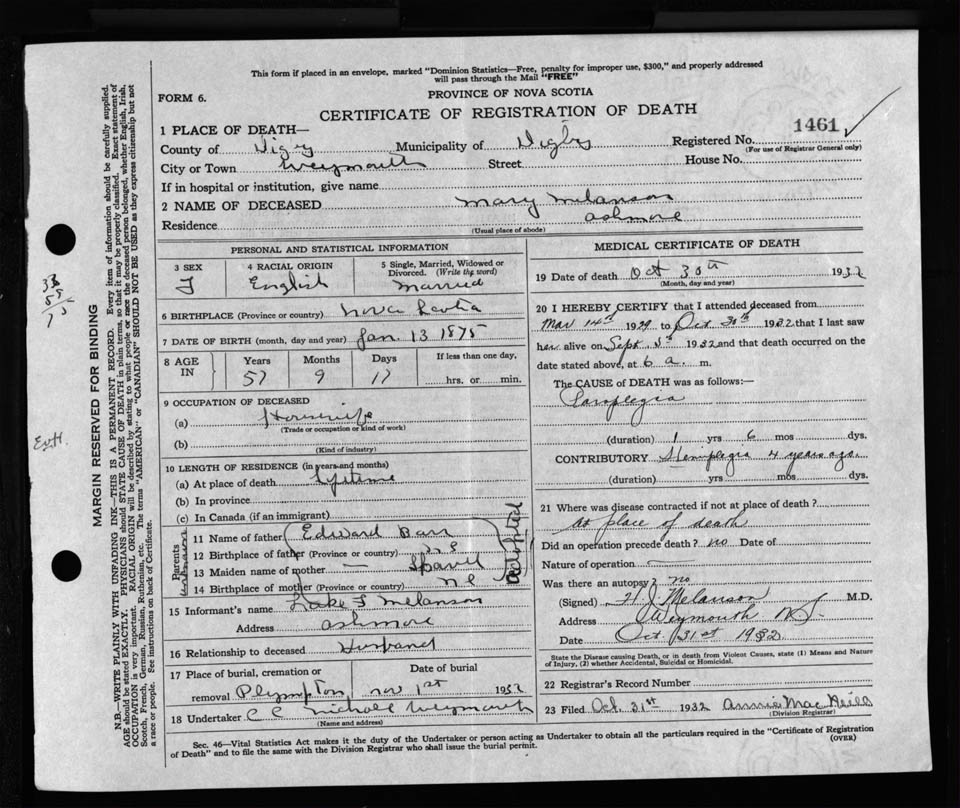 This form if placed in an envelope, marked "Dominion Statistics—Free, penalty for improper use, $300," and properly addressed
will pass through the Mail "FREE"
FORM 6.
PROVINCE OF NOVA SCOTIA
CERTIFICATE OF REGISTRATION OF DEATH
1 PLACE OF DEATH—
1461
County of Digby Municipality of Digby Registered No.
(For use of Registrar General only)
City or Town Weymouth Street House No.
If in hospital or institution, give name
2 NAME OF DECEASED Mary Melanson
Residence Ashmore
(Usual place of abode)
PERSONAL AND STATISTICAL INFORMATION
3 SEX 4 RACIAL ORIGIN 5 Single, Married, Widowed or
Divorced. (Write the word)
F English Married
6 BIRTHPLACE (Province or country) Nova Scotia
7 DATE OF BIRTH (month, day and year) Jan. 13 1875
8 AGE IN Years Months Days If less than one day,
57 9 17 hrs. or min.
9 OCCUPATION OF DECEASED
(a) Housewife
(Trade or occupation or kind of work)
(b)
(Kind of industry)
10 LENGTH OF RESIDENCE (in years and months)
(a) At place of death Lifetime
(b) In province
(c) In Canada (if an immigrant)
Parents unknown
adopted
11 Name of father Edward Barr
12 Birthplace of father (Province or country) N S
13 Maiden name of mother —
14 Birthplace of mother (Province or country)
15 Informant's name F Melanson
Address Ashmore
16 Relationship to deceased Husband
17 Place of burial, cremation or Date of burial
removal Plympton, Nov 1st 1932
18 Undertaker C C Nichols Weymouth
(Name and address)
MEDICAL CERTIFICATE OF DEATH
19 Date of death Oct 30th 1932
(Month, day and year)
20 I HEREBY CERTIFY that I attended deceased from
Mar 14th 1929 to Oct 30th 1932 that I last saw
her alive on Sept 1932 and that death occurred on the
date stated above, at 6 a. m.
The CAUSE OF DEATH was as follows:—
Paraplegia
(duration) 1 yrs 6 mos dys.
CONTRIBUTORY Hemiplegia 4 years ago.
(duration) yrs mos dys.
21 Where was disease contracted if not at place of death?
At place of death
Did an operation precede death? no Date of
Nature of operation —
Was there an autopsy? no
(Signed) H J Melanson M.D.
Address Weymouth N.S.
Date Oct. 31st 1932
State the Disease causing Death, or in death from Violent Causes, state (1) Means and Nature
of Injury, (2) whether Accidental, Suicidal or Homicidal.
22 Registrar's Record Number
23 Filed Oct. 31st 1932 Annie Mac
(Division Registrar)
Sec. 46—Vital Statistics Act makes it the duty of the Undertaker or person acting as Undertaker to obtain all the particulars required in the "Certificate of Registration
of Death" and to file the same with the Division Registrar who shall issue the burial permit.
(OVER)
MARGIN RESERVED FOR BINDING
N.B.—WRITE PLAINLY WITH UNFADING INK—THIS IS A PERMANENT RECORD. Every item of information should be carefully supplied.
AGE should be stated EXACTLY. PHYSICIANS should STATE CAUSE OF DEATH in plain terms, so that it may be properly classified. Exact statement of
OCCUPATION is very important. RACIAL ORIGIN will be described by stating to what people or race the deceased person belonged, whether English, Irish,
Scotch, French, German, Russian, Ruthenian, etc. The terms "AMERICAN" or "CANADIAN" SHOULD NOT BE USED as they express citizenship but not
a race or people. See instructions on back of Certificate.